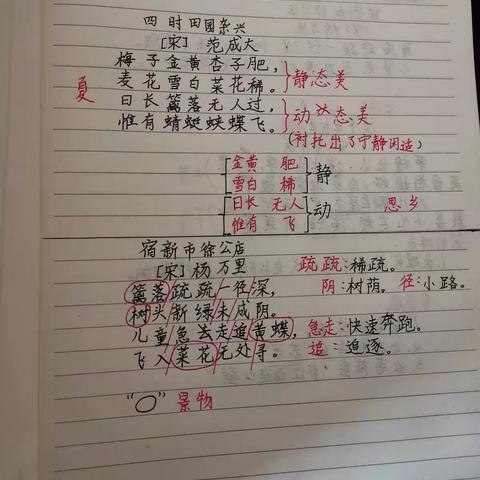 四时田园杂兴
[宋] 范成大
梅子金黄杏子肥，
麦花雪白菜花稀。}静态美
夏
日长篱落无人过，
惟有蜻蜓蛱蝶飞。}动态美
(衬托出了宁静闲适)
金黄 肥
雪白 稀 静
日长 无人
惟有 飞 动 思乡
宿新市徐公店
[宋] 杨万里 疏疏：稀疏。
篱落疏疏一径深， 阴：树荫。径：小路。
树头新绿未成阴。
儿童急走追黄蝶， 急走：快速奔跑。
飞入菜花无处寻。 追：追逐。
“○” 景物